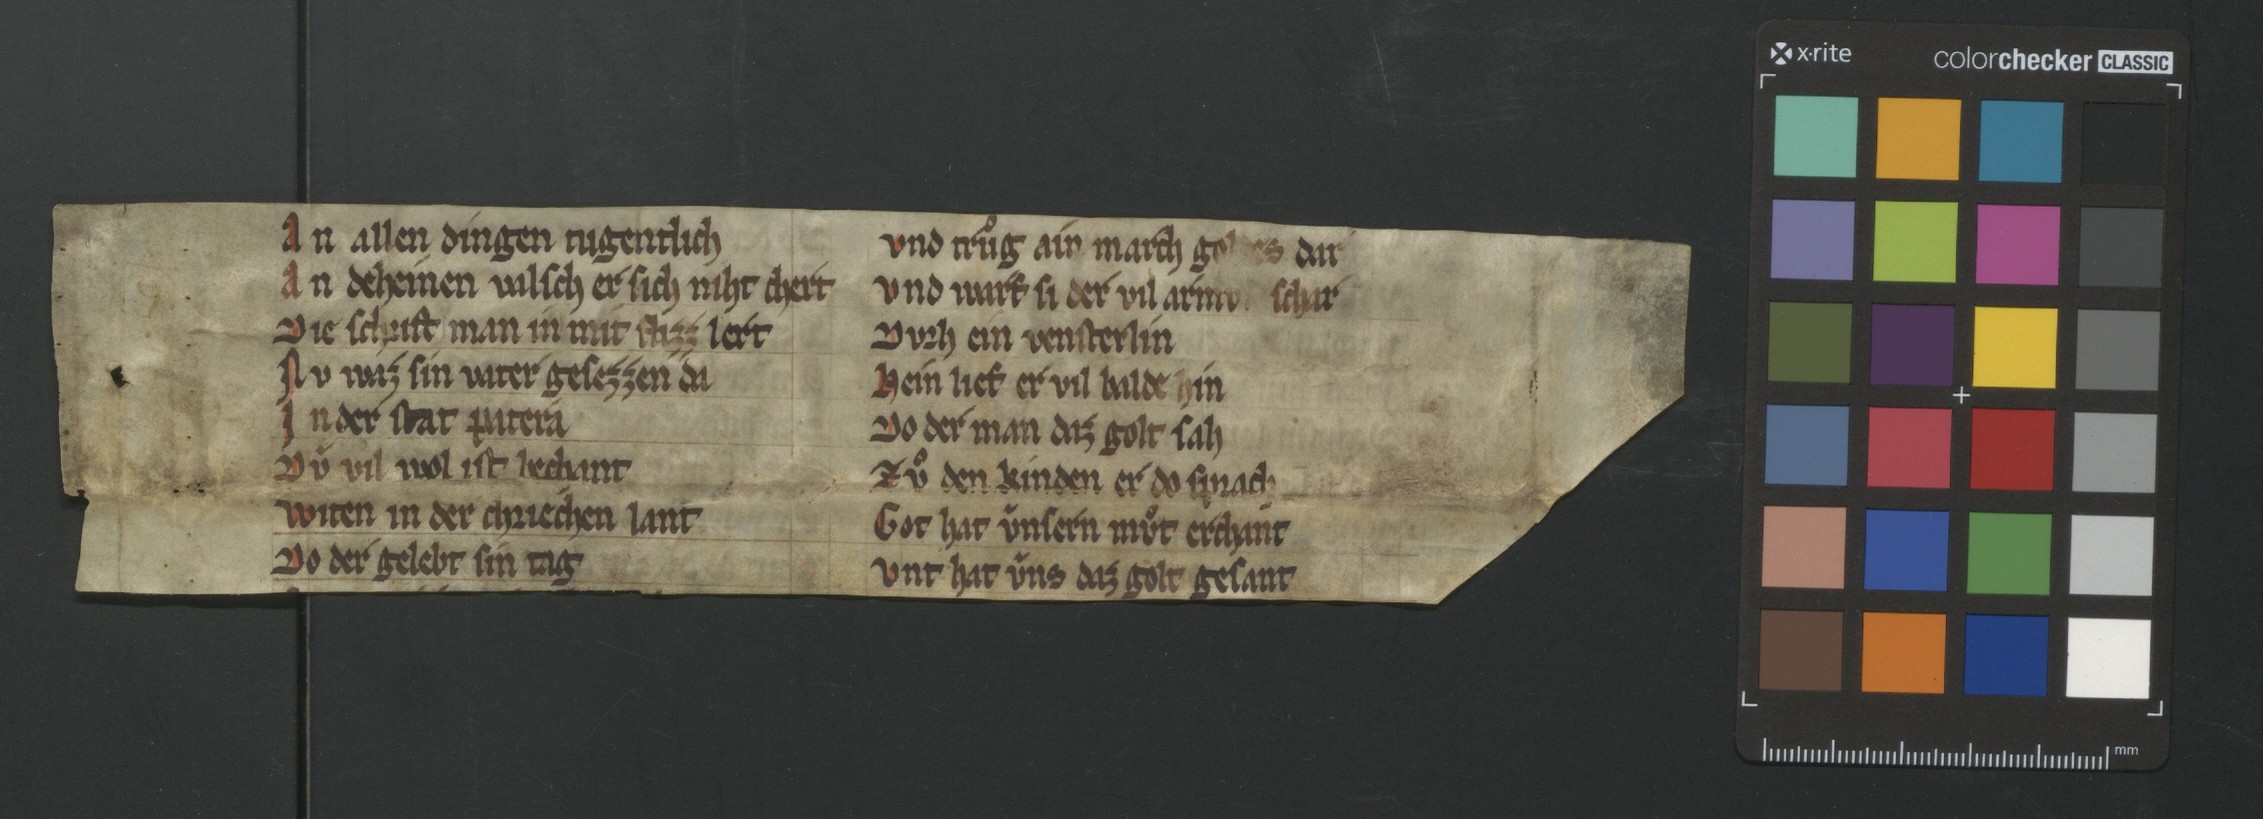 An allen dingen tugentlich
An deheinen valsch er sich niht chert
Die schrift man in mit flizz lert
Nv waz sin vater gesezzen da
In der stat patera
Dv̓ vil wol ist bechant
witen in der chriechen lant
Do der gelebt sin tag
vnd trůg ain march goldes dar
vnd warf si der vil armen schar
Dvrh ein vensterlin
Hein lief er vil balde hin
Do der man daz golt sah
Zv̊ den kinden er do sprach
Got hat v̓nsern mv̊t erchant
vnt hat v̓ns daz golt gesant
x·rite
colorchecker CLASSIC
mm